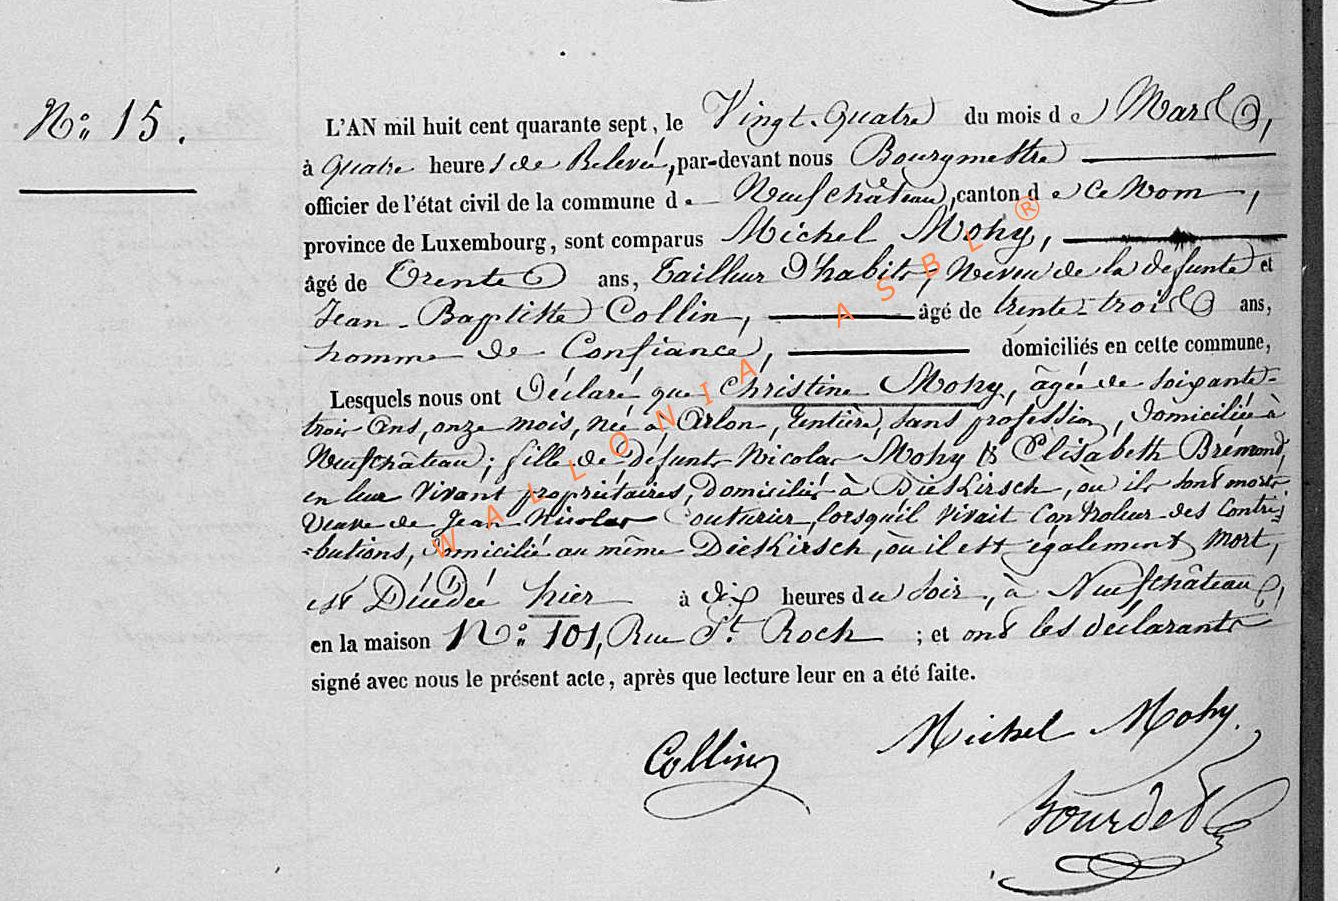 N.o 15.
L'AN mil huit cent quarante sept, le Vingt-Quatre du mois de Mars,
à quatre heures de Relevée, par-devant nous Bourgmestre
officier de l'état civil de la commune de Neufchâteau, canton de ce Nom,
province de Luxembourg, sont comparus Michel Mohy,
âgé de Trente ans, Tailleur D'habits, Neveu de la défunte et
Jean-Baptiste Collin, âgé de trente-trois ans,
homme de Confiance, domiciliés en cette commune,
Lesquels nous ont Déclaré que Christine Mohy, âgée de soixante-
trois Ans, onze mois, née à Arlon, Rentière, sans profession, Domiciliée à
Neufchâteau; fille de Défunts Nicolas Mohy & Elisabeth Brémond,
en leur Vivant propriétaires, Domiciliés à Diekirsch, où ils sont morts
Veuve de Jean Nicolas Couturier lorsqu'il vivait Controleur des Contri-
=butions, Domicilié au même Diekirsch, où il est également Mort,
est Décédée hier à dix heures du soir, à Neufchâteau,
en la maison N.o 101, Rue St. Roch ; et ont les déclarants
signé avec nous le présent acte, après que lecture leur en a été faite.
Collin
Michel Mohy.
Bourdet
WALLONIA ASBL ®